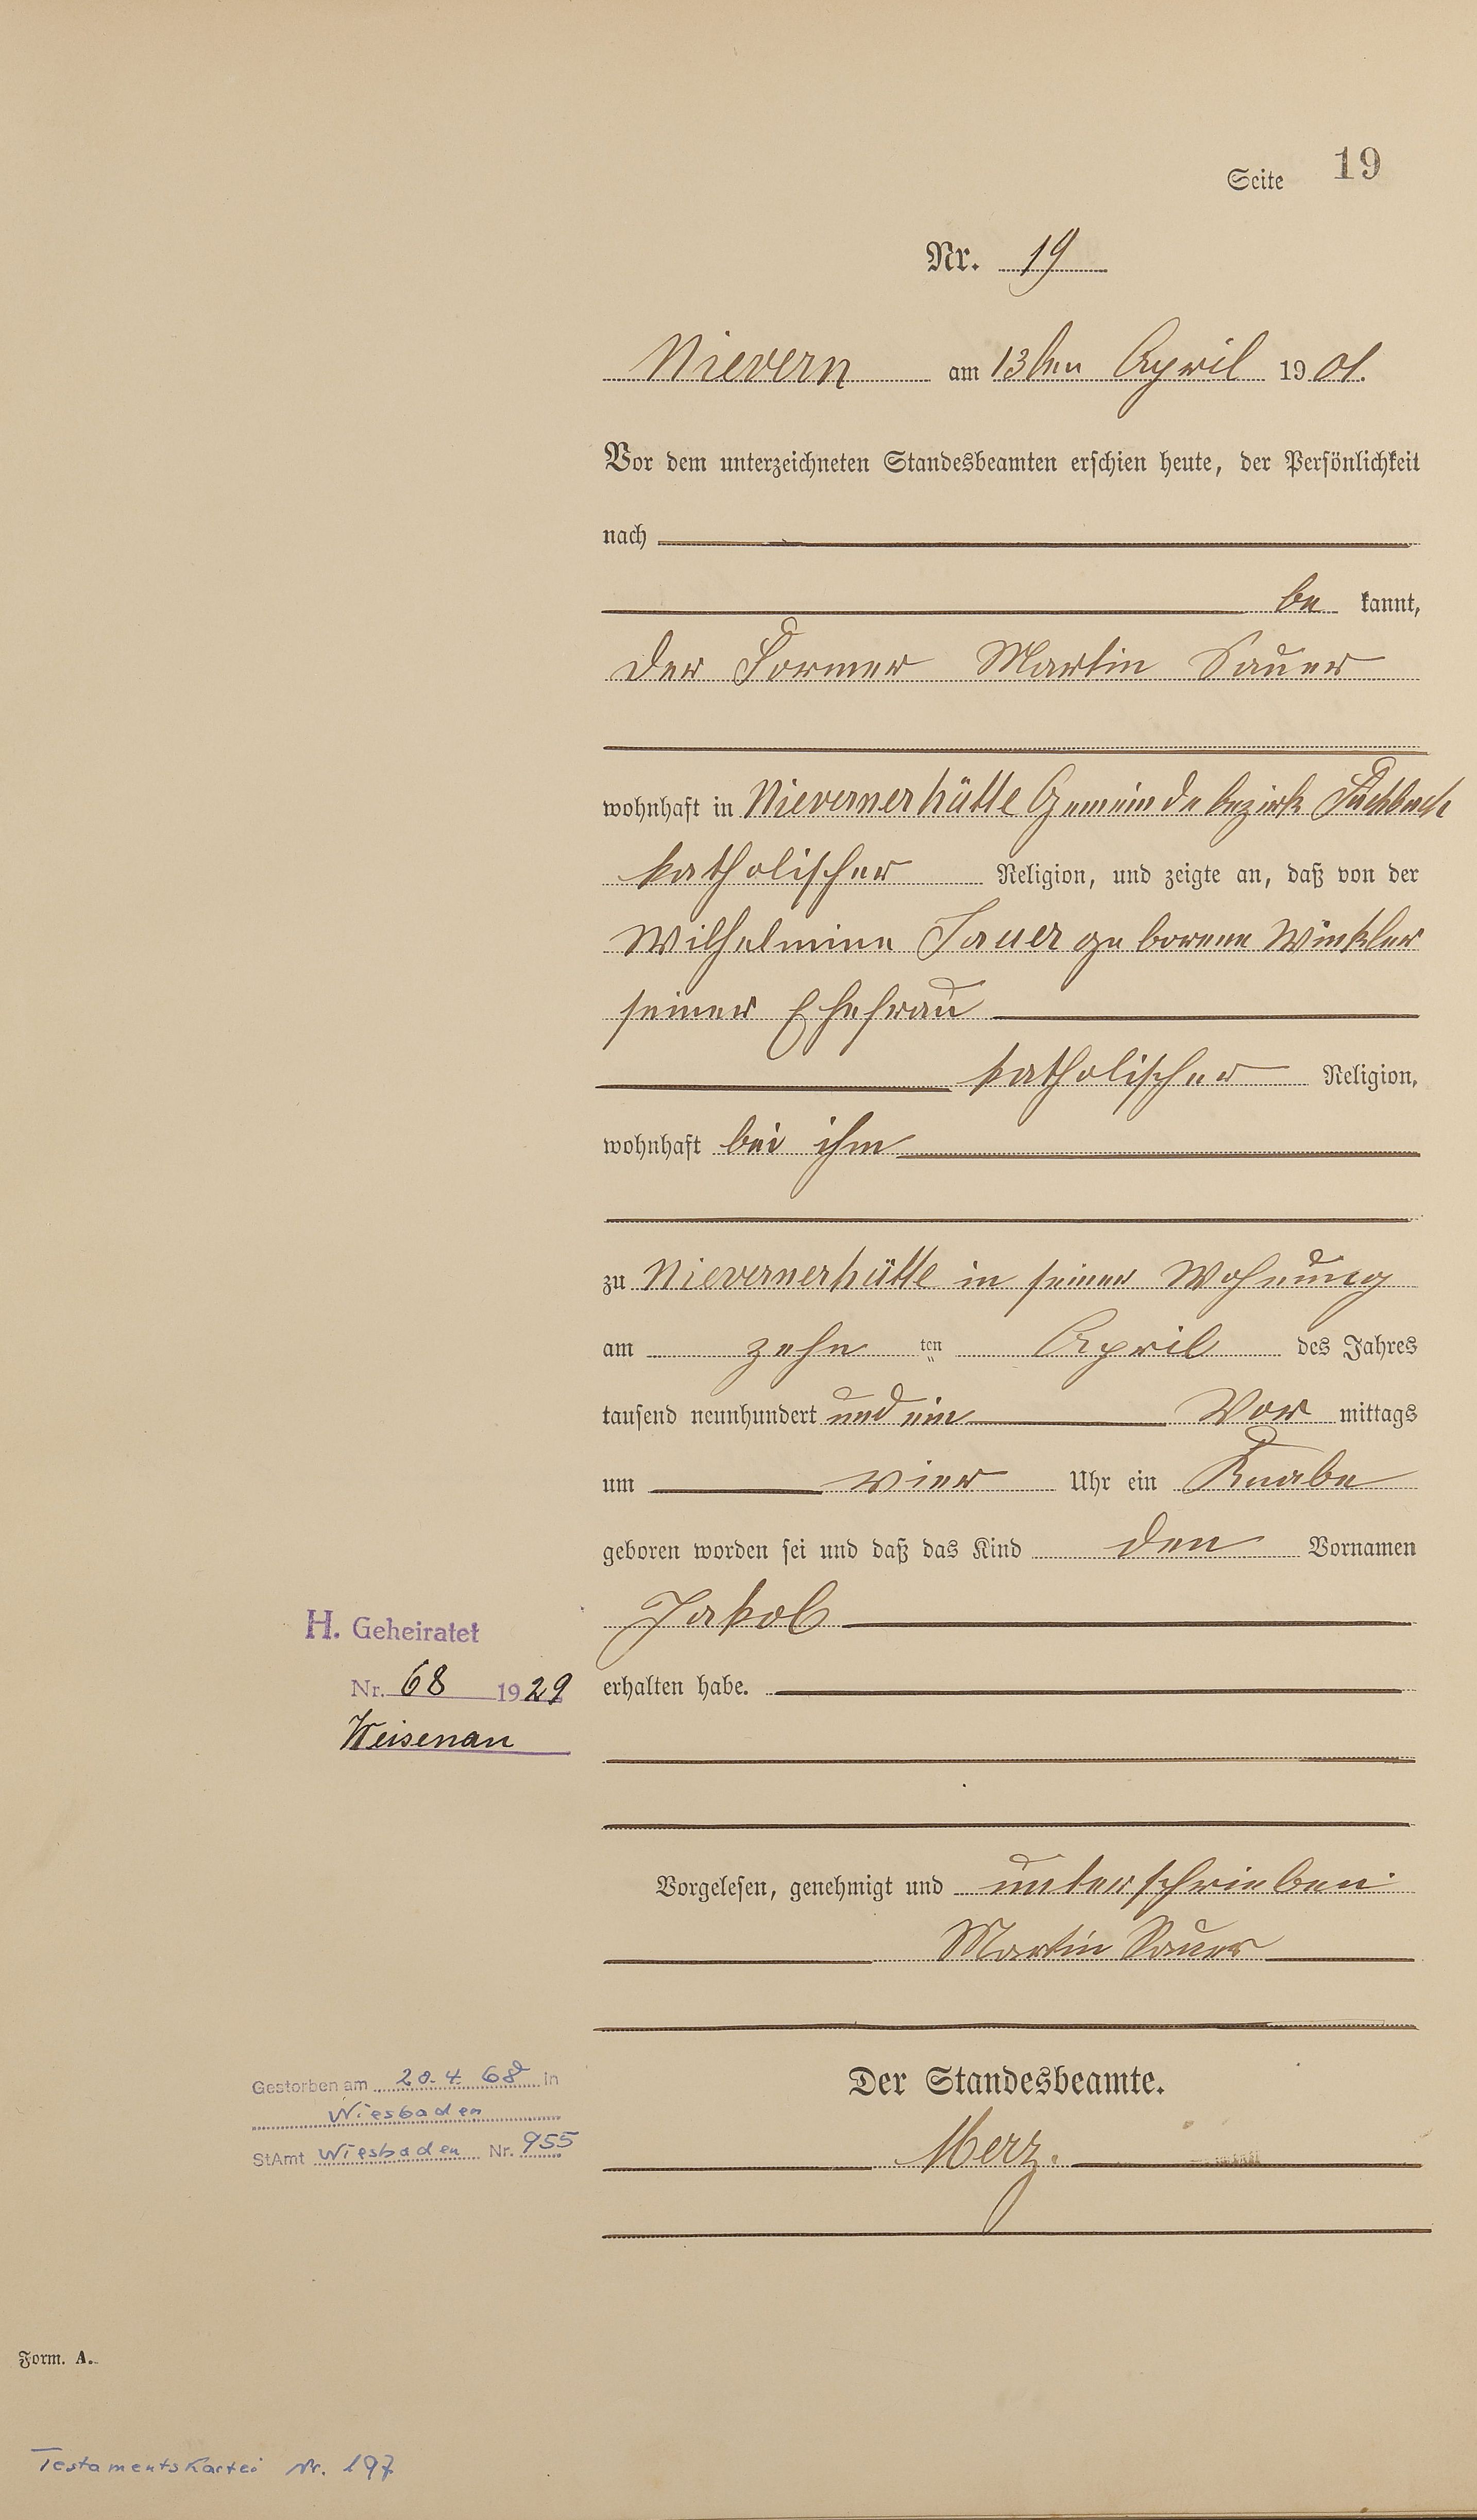 Seite 19
Nr. 19
Nievern am 13ten April 1901.
Vor dem unterzeichneten Standesbeamten erschien heute, der Persönlichkeit
nach
be kannt,
der Former Martin Sauer
wohnhaft in Nievernerhütte Gemeindebezirk Fachbach
katholischer Religion, und zeigte an, daß von der
Wilhelmine Sauer geborene Winkler
seiner Ehefrau
katholischer Religion,
wohnhaft bei ihm
zu Nievernerhütte in seiner Wohnung
am zehn ten April des Jahres
tausend neunhundert und ein Vor mittags
um vier Uhr ein Knabe
geboren worden sei und daß das Kind den Vornamen
Jakob
erhalten habe.
H. Geheiratet
Nr. 68 1929
Weisenau
Vorgelesen, genehmigt und unterschrieben
Martin Sauer
Der Standesbeamte.
Merz.
Gestorben am 20.4.68 in
Wiesbaden
StAmt Wiesbaden Nr. 955
Form. A.
Testamentskartei Nr. 197